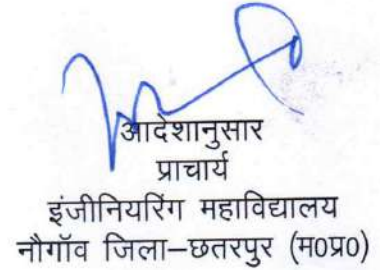 आदेशानुसार
प्राचार्य
इंजीनियरिंग महाविद्यालय
नौगॉव जिला–छतरपुर (म0प्र0)